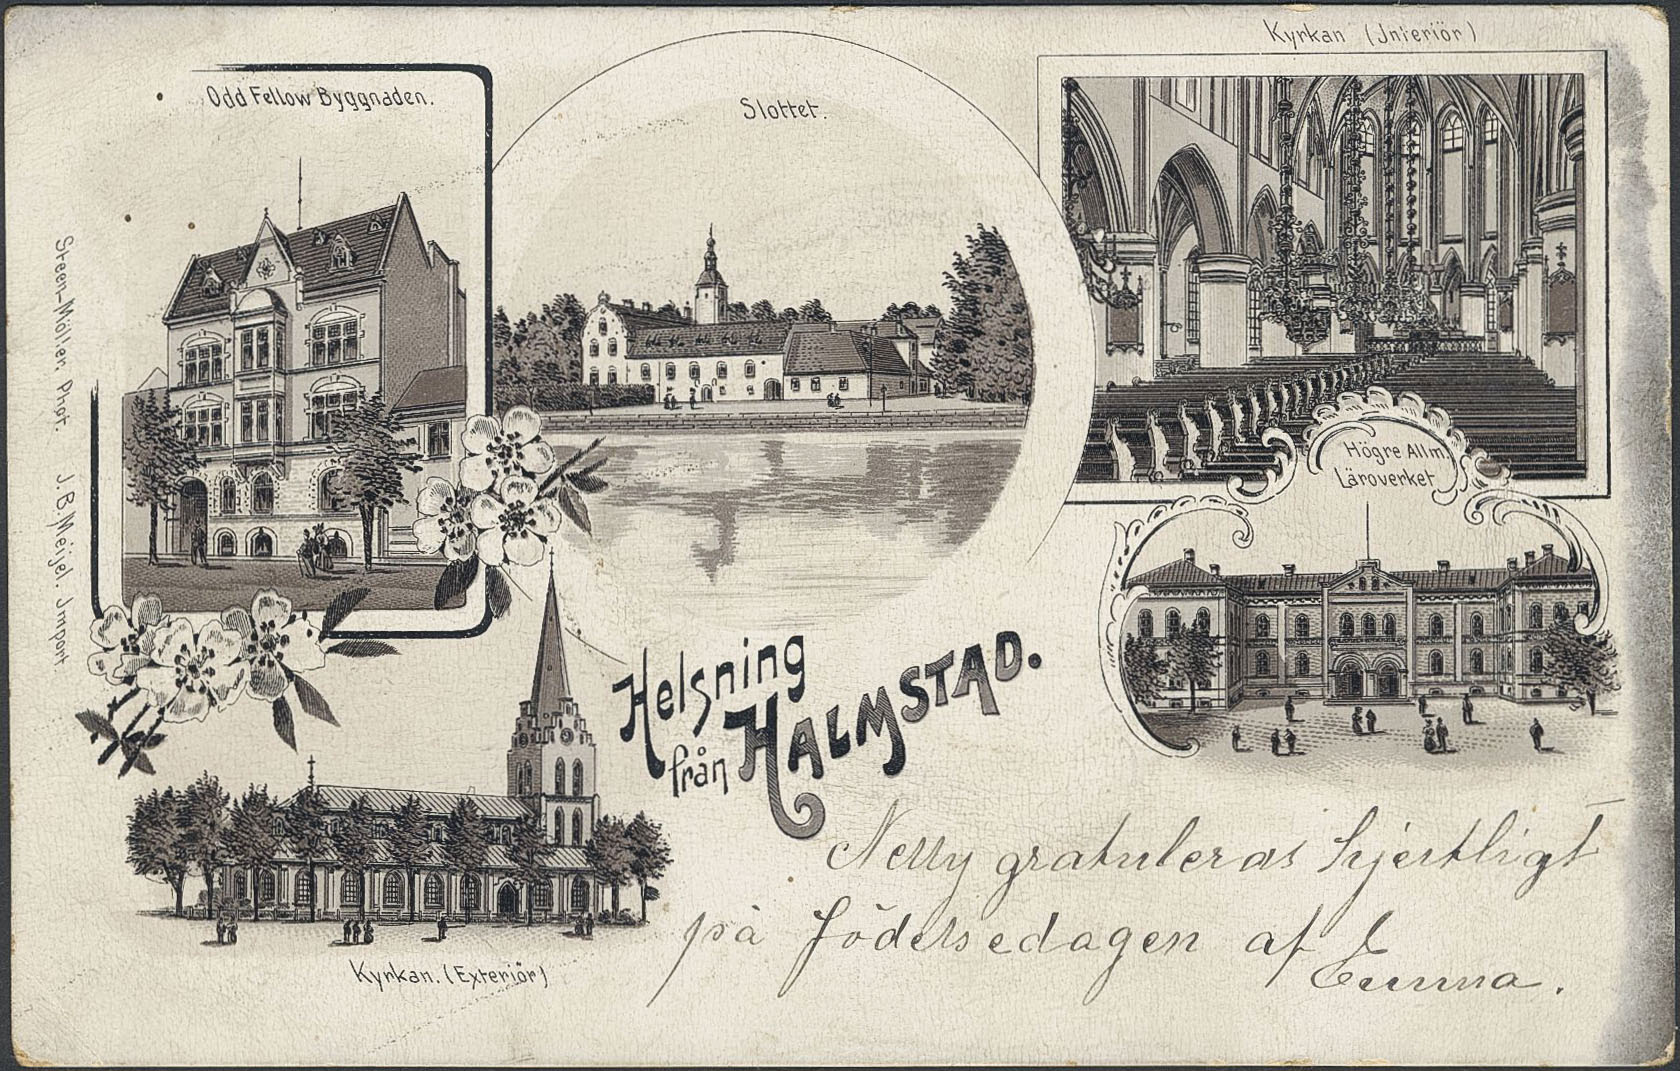 Kyrkan (Interiör)
Odd Fellow Byggnaden.
Slottet.
Högre Allm
Läroverket
Steen-Möller, Phot. J.B. Meijel. Import.
Helsning
från HALMSTAD.
Nelly gratuleras hjertligt
på födelsedagen af
Emma.
Kyrkan. (Exteriör)